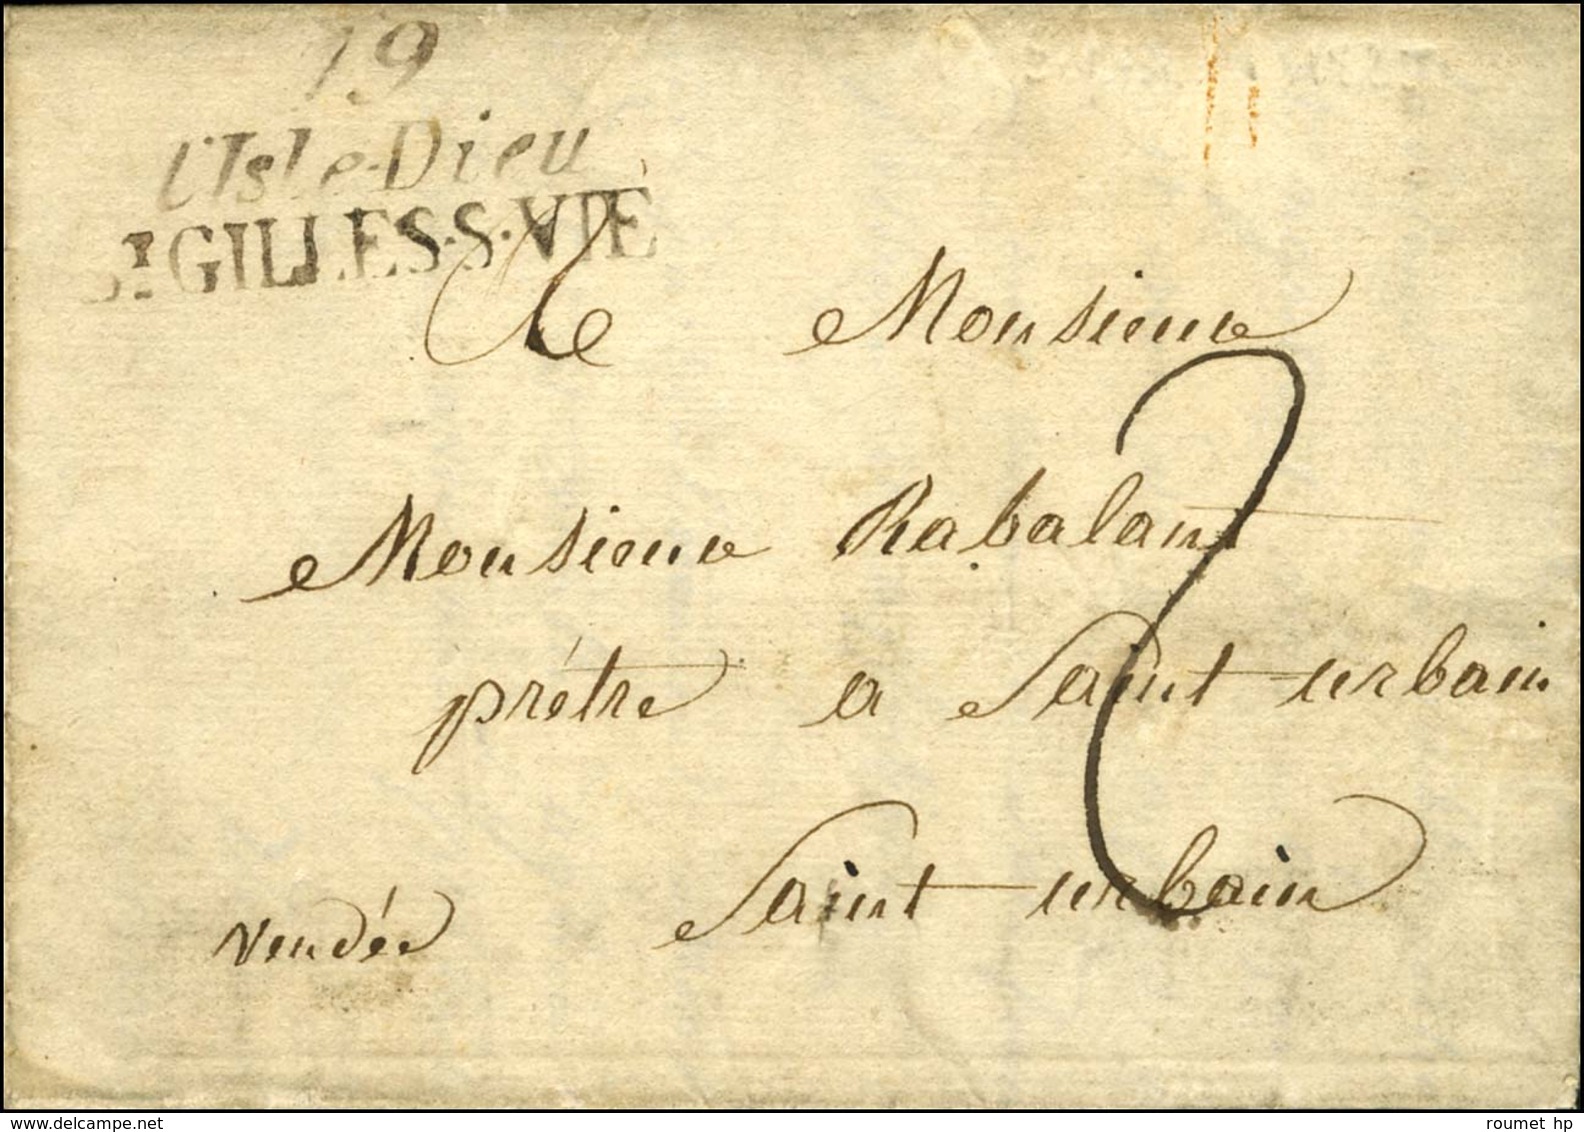 19
L'Isle-Dieu
St GILLES·S·VIE
Monsieur
2
Monsieur Rabalant
prétre a Saint urbain
Saint urbain
vendée
delcampe.net
roumet hp